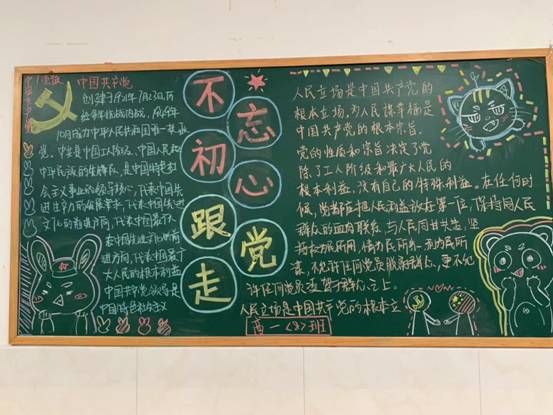 中国共产党
创建于1921年7月23日,历
党。中共是中国工人阶级、中国人民和
中华民族的先锋队,是中国特色社
会主义事业的领导核心,代表中国先
进生产力的发展要求,代表中国先进
文化的前进方向,代表中国最广大
进方向,代表中国最广
大人民的根本利益
中国特色社会主义
不忘初心
跟党走
人民立场是中国共产党的
根本立场,为人民谋幸福是
中国共产党的根本宗旨。
党的性质和宗旨决定了党
除了工人阶级和最广大人民的
根本利益,没有自己的特殊利益。在任何时
候,党都应把人民利益放在第一位,保持同人民
群众的血肉联系,与人民同甘共苦,坚
持权为民所用,情为民所系,利为民所
许任何党员凌驾于群众之上。
人民立场是中国共产党的根本立
高一〈8〉班